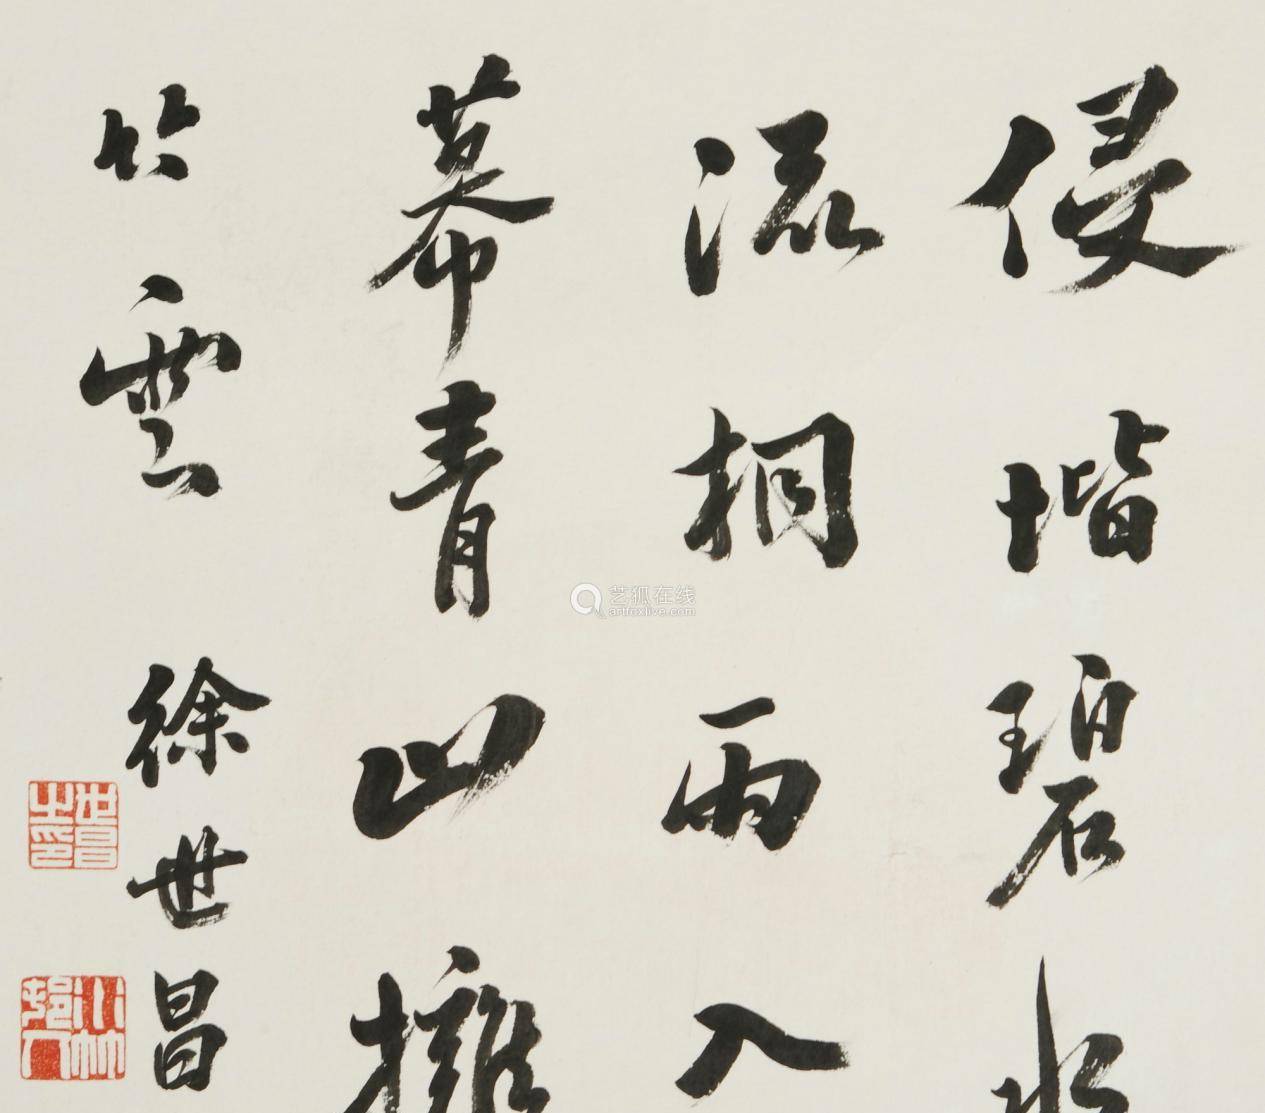 侵堦碧水
流桐雨入
幕青山擁
竹雲
徐世昌
世昌之印
水竹邨人
艺狐在线
artfoxlive.com